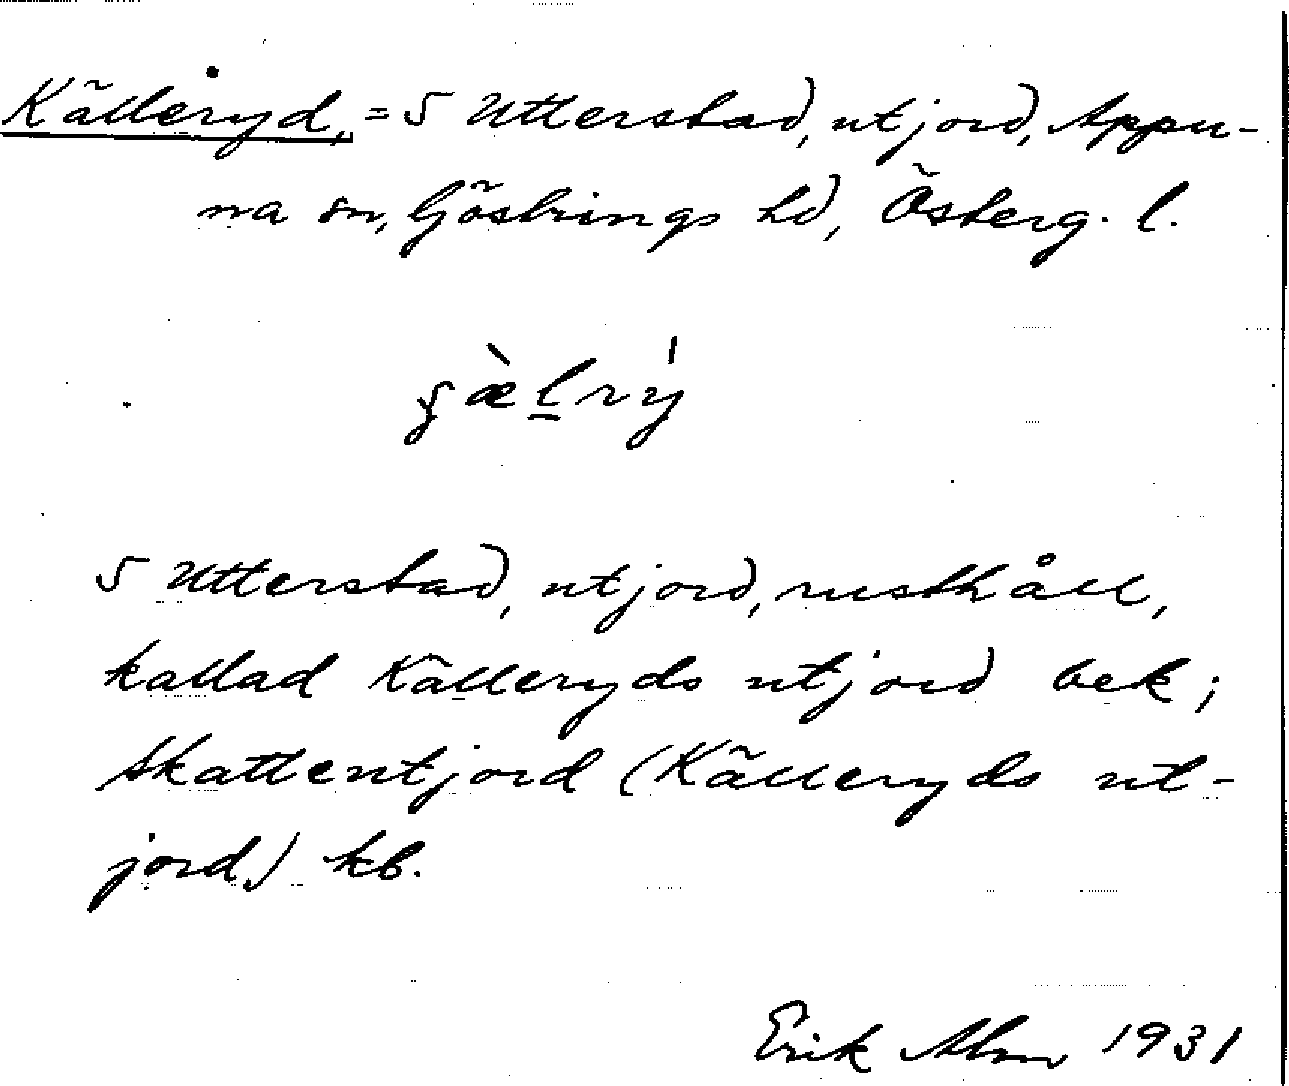 Källeryd, = 5 Utterstad, utjord, Appu-
na sn, Göstrings hd, Österg. l.
5 Utterstad, utjord, rusthåll,
kallad Källeryds utjord bek;
skatteutjord (Källeryds ut-
jord) kb.
Erik Alm 1931